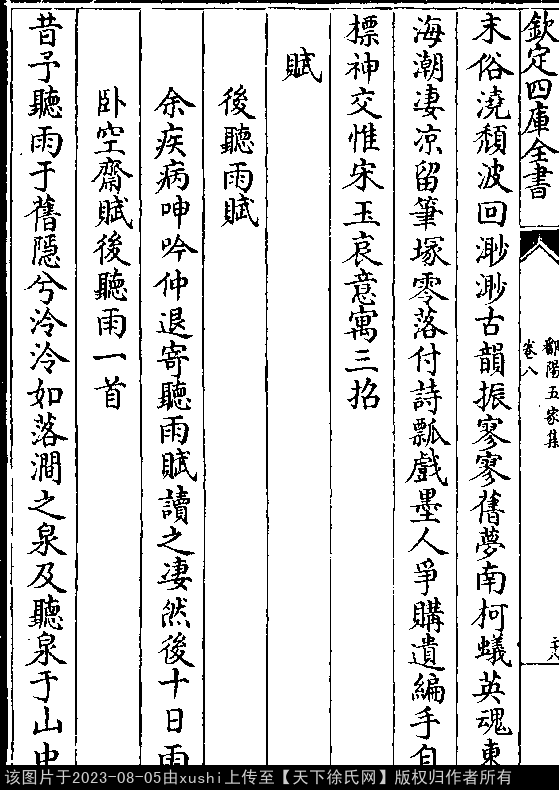 欽定四庫全書
鄱陽五家集
卷八
二十八
末俗澆頽波回渺渺古韻振寥寥舊夢南柯蟻英魂東
海潮凄凉留筆塜零落付詩瓢戲墨人爭購遺編手自
摽神交惟宋玉哀意寓三招
賦
後聽雨賦
余疾病呻吟仲退寄聽雨賦讀之凄然後十日雨
卧空齋賦後聽雨一首
昔予聽雨于舊隱兮泠泠如落澗之泉及聽泉于山中
该图片于2023-08-05由xushi上传至【天下徐氏网】版权归作者所有